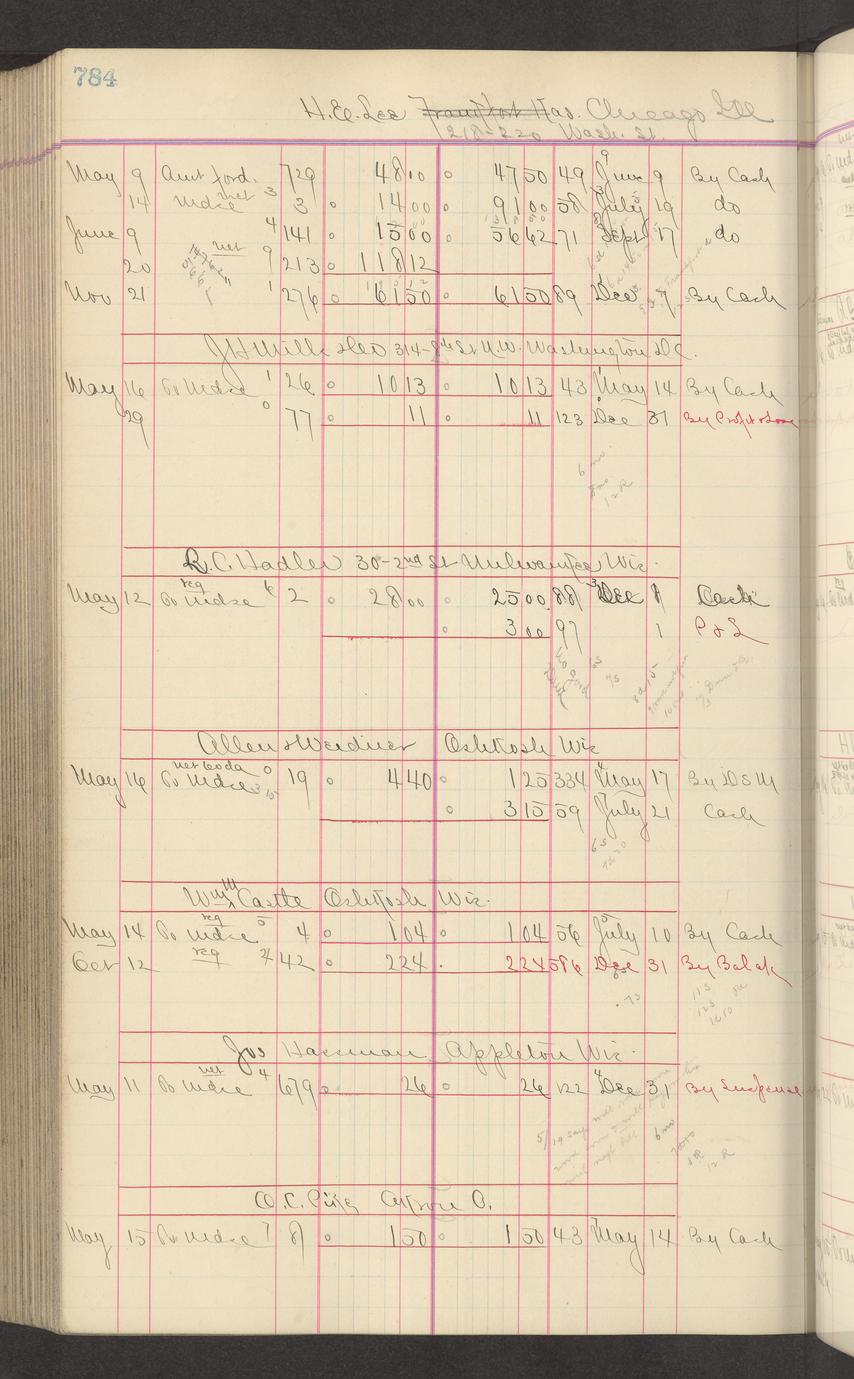 784
H.E. Lee Frankfort Has. Chicago Ill
218-220 Wash. St.
May 9 Amt ford. 729 48 00 47 50 49 June 9 By Cash
14 Mdse net 3 3 14 00 91 00 58 July 19 do
June 9 4 141 15 00 56 62 71 Sept 17 do
20 net 9 213 118 12
Nov 21 1 276 61 50 61 50 89 Dec 7 By Cash
J H Mills 314- 8th St N.W. Washington D.C.
May 16 To Mdse 1 26 10 13 10 13 43 May 14 By Cash
29 0 77 11 11 123 Dec 31 By Profit & Loss
6 mo
R.C. Hadler 30-2nd St Milwaukee Wis.
May 12 To Mdse reg 6 2 28 00 25 00 88 Dec 1 Cash
3 00 97 1 P & L
Allen & Weidner Oshkosh Wis
May 16 To Mdse net 0 19 4 40 1 25 334 May 17 By D S M
3 15 59 July 21 Cash
Wm M Castle Oshkosh Wis.
May 14 To Mdse reg 5 4 1 04 1 04 56 July 10 By Cash
Oct 12 reg 42 2 24 2 24 586 Dec 31 By Bal
Jos Hassman Appleton Wis.
May 11 To Mdse net 4 679 26 26 122 Dec 31 By Suspense
6 mo
12 R
O.C. Pike Akron O.
May 15 To Mdse 7 8 1 50 1 50 43 May 14 By Cash